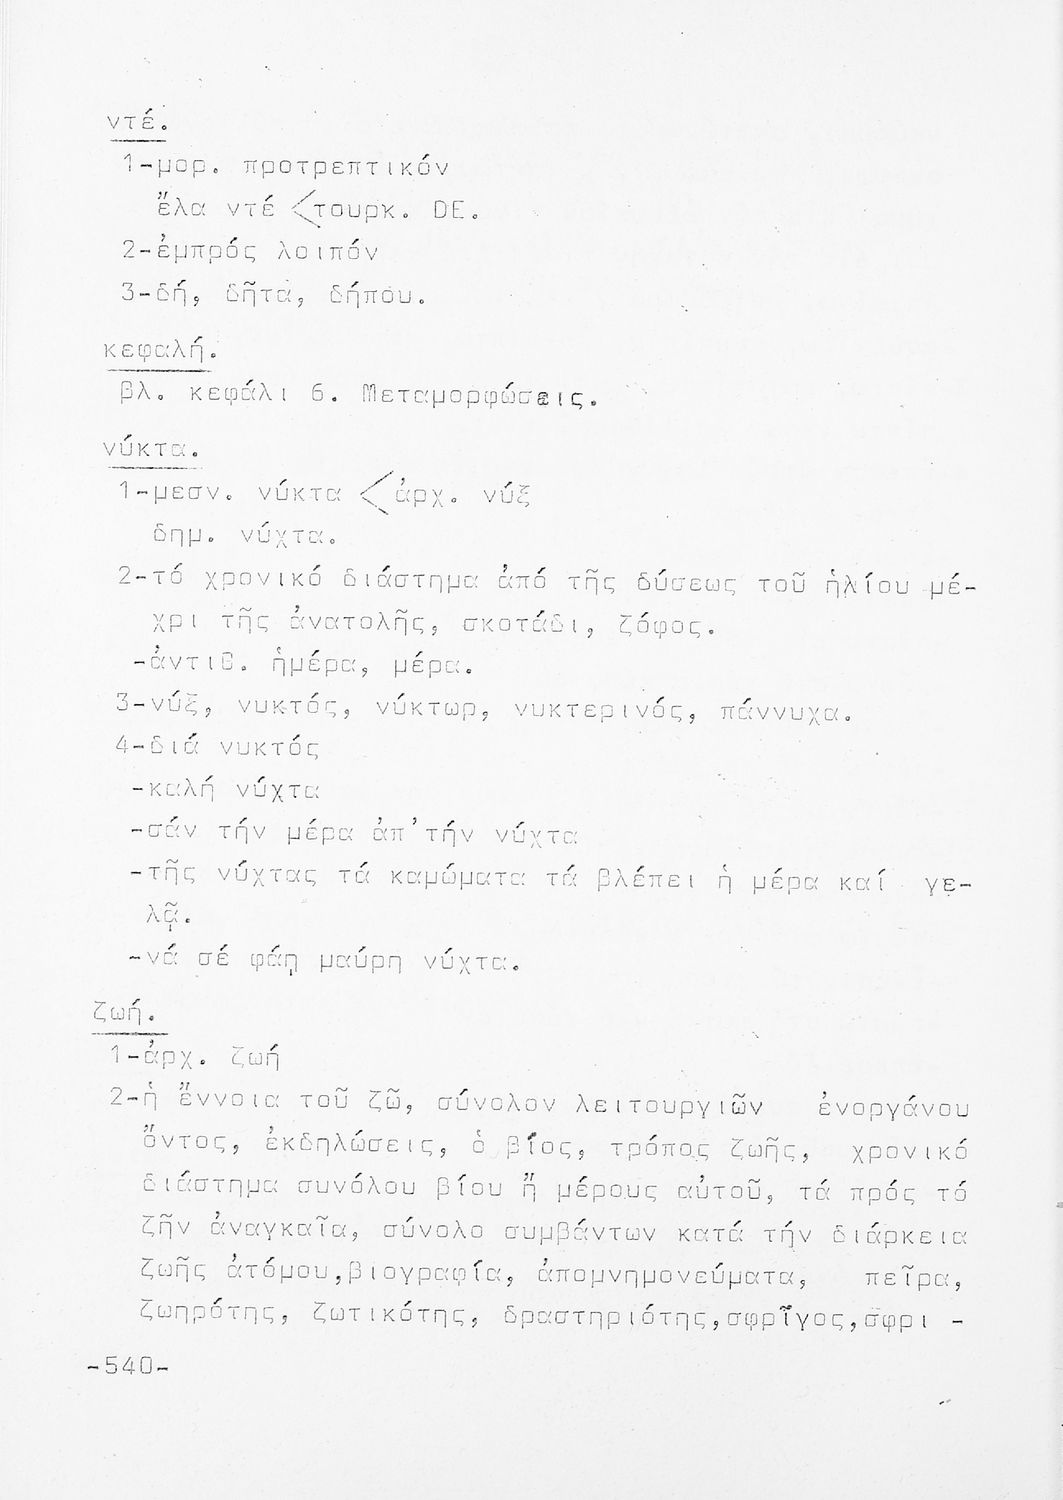 ντέ.
1-μορ. προτρεπτικόν
ἔλα ντέ <τουρκ. DE.
2-ἐμπρός λοιπόν
3-δή, δῆτα, δήπου.
κεφαλή.
βλ. κεφάλι 6. Μεταμορφώσεις.
νύκτα.
1-μεσν. νύκτα <ἀρχ. νύξ
δημ. νύχτα.
2-τό χρονικό διάστημα ἀπό τῆς δύσεως τοῦ ἡλίου μέ-
χρι τῆς ἀνατολῆς, σκοτάδι, ζόφος.
-ἀντιθ. ἡμέρα, μέρα.
3-νύξ, νυκτός, νύκτωρ, νυκτερινός, πάννυχα.
4-διά νυκτός
-καλή νύχτα
-σάν τήν μέρα ἀπ'τήν νύχτα
-τῆς νύχτας τά καμώματα τά βλέπει ἡ μέρα καί γε-
λᾷ.
-νά σέ φάῃ μαύρη νύχτα.
ζωή.
1-ἀρχ. ζωή
2-ἡ ἔννοια τοῦ ζῶ, σύνολον λειτουργιῶν ἐνοργάνου
ὄντος, ἐκδηλώσεις, ὁ βίος, τρόπος ζωῆς, χρονικό
διάστημα συνόλου βίου ἤ μέρους αὐτοῦ, τά πρός τό
ζῆν ἀναγκαῖα, σύνολο συμβάντων κατά τήν διάρκεια
ζωῆς ἀτόμου,βιογραφία, ἀπομνημονεύματα, πεῖρα,
ζωηρότης, ζωτικότης, δραστηριότης,σφρῖγος,σφρι -
-540-